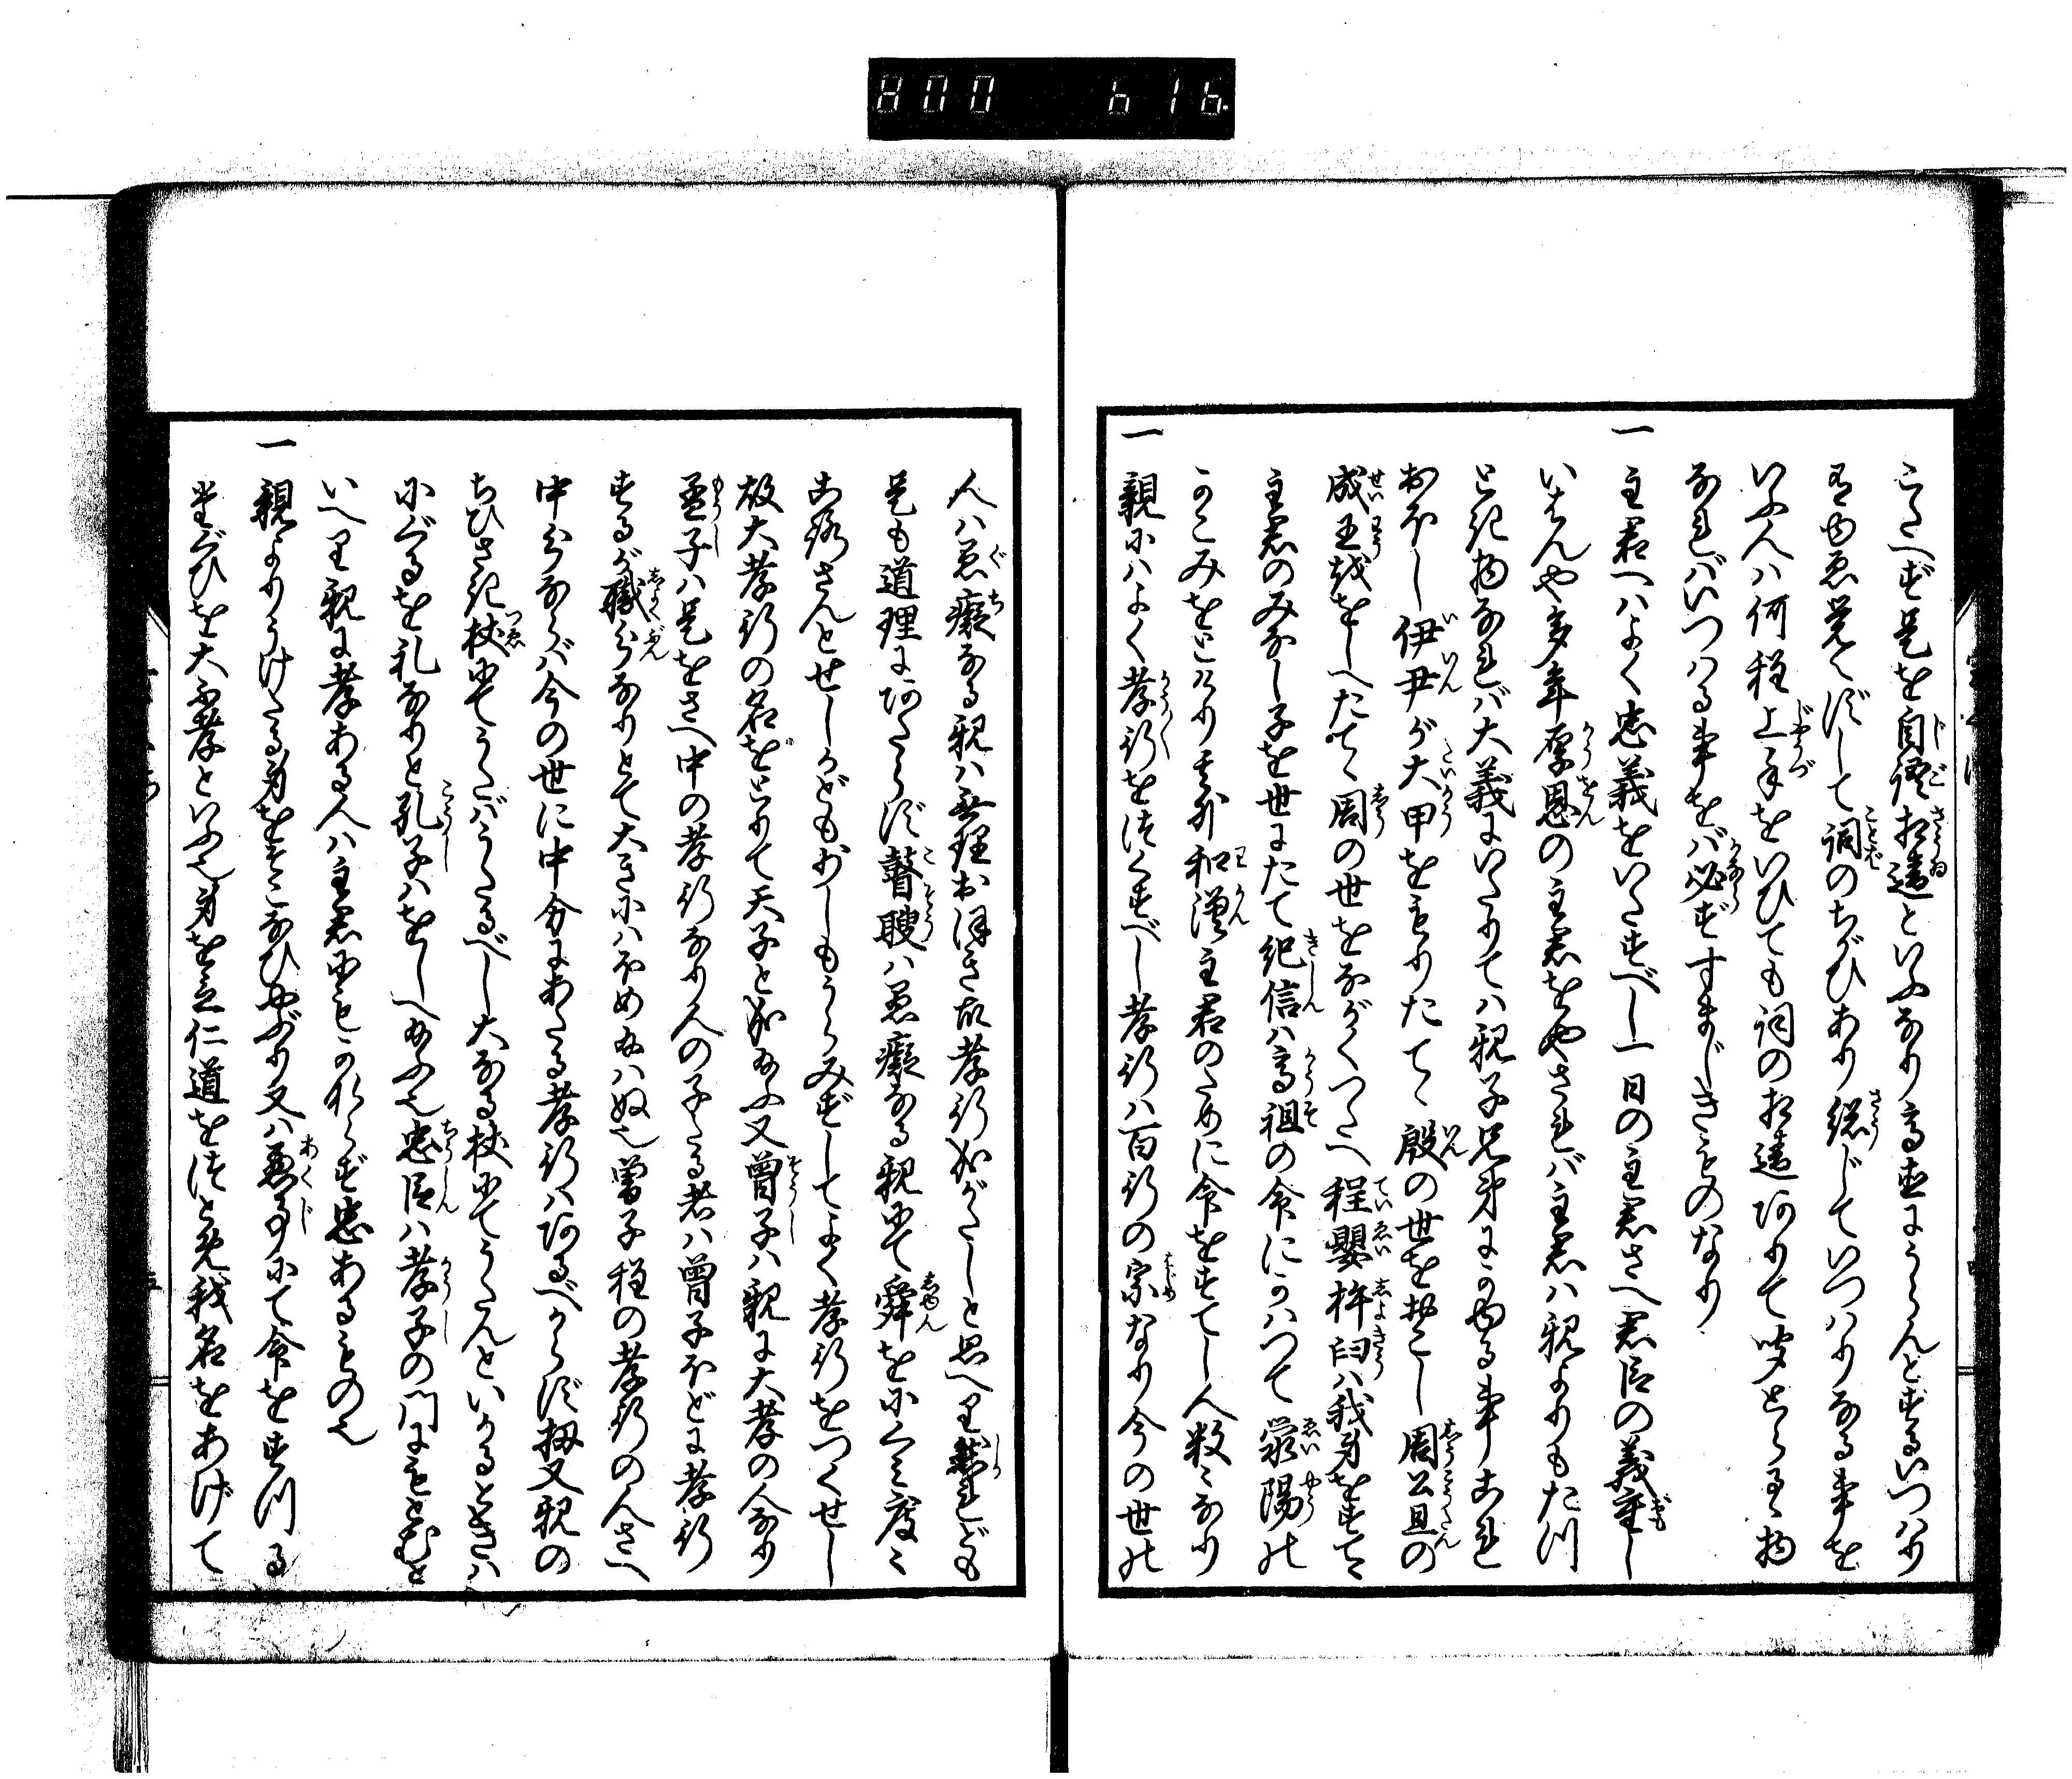 800 616
こたへず是を自語相違といふなり高直にうらんとするいつはり
をゆゑ覚えずして詞のちがひあり総じていつはりなる事を
いふ人ハ何程上手をいひても詞の相違ありて聞とらるゝ物
なれバいつはる事をバ必ずすまじきものなり
一主君へハよく忠義をいたすべし一日の主君さへ君臣の義重し
いはんや多年厚恩の主君をやされバ主君ハ親よりもたつ
とき物なれバ大義にいたりてハ親子兄弟にかゆる事これ
おほし伊尹が大甲をもりたてゝ殷の世をおこし周公旦の
成王をおしへたてゝ周の世をながくつたへ程嬰杵臼ハ我身をすてゝ
主君のみなし子を世にたて紀信ハ高祖の命にかハつて滎陽に
かこみをとけり其外和漢主君のために命をすてし人数々なり
一親にハよく孝行をつくすべし孝行ハ百行の宗なり今の世の
人ハ愚癡なる親ハ無理おほき故孝行がたしと思へり然れども
是も道理にあたらず瞽瞍ハ愚癡なる親にて舜をにくミ度々
ころさんとせしかどもすこしもうらみずしてよく孝行をつくせし
故大孝行の名をとりて天子と成給ふ又曾子ハ親に大孝の人なり
孟子ハ是をさへ中の孝行なり人の子たる者ハ曾子ほどに孝行
するが職分なりとて大きにハほめ給ハぬ也曾子程の孝行の人さへ
中分ならバ今の世に中分にあたる孝行ハあるべからず扨又親の
ちひさき杖にてうたバうたるべし大なる杖にてうたんといかるときハ
にぐるを礼なりと孔子ハをしへ給ふ也忠臣ハ孝子の門にもとむと
いへり親に孝ある人ハ主君にもかならず忠あるもの也
一親よりうけたる身をそこなひやぶり又ハ悪事にて命をすつる
たぐひを大不孝といふ也身を立仁道をつとめ我名をあげて